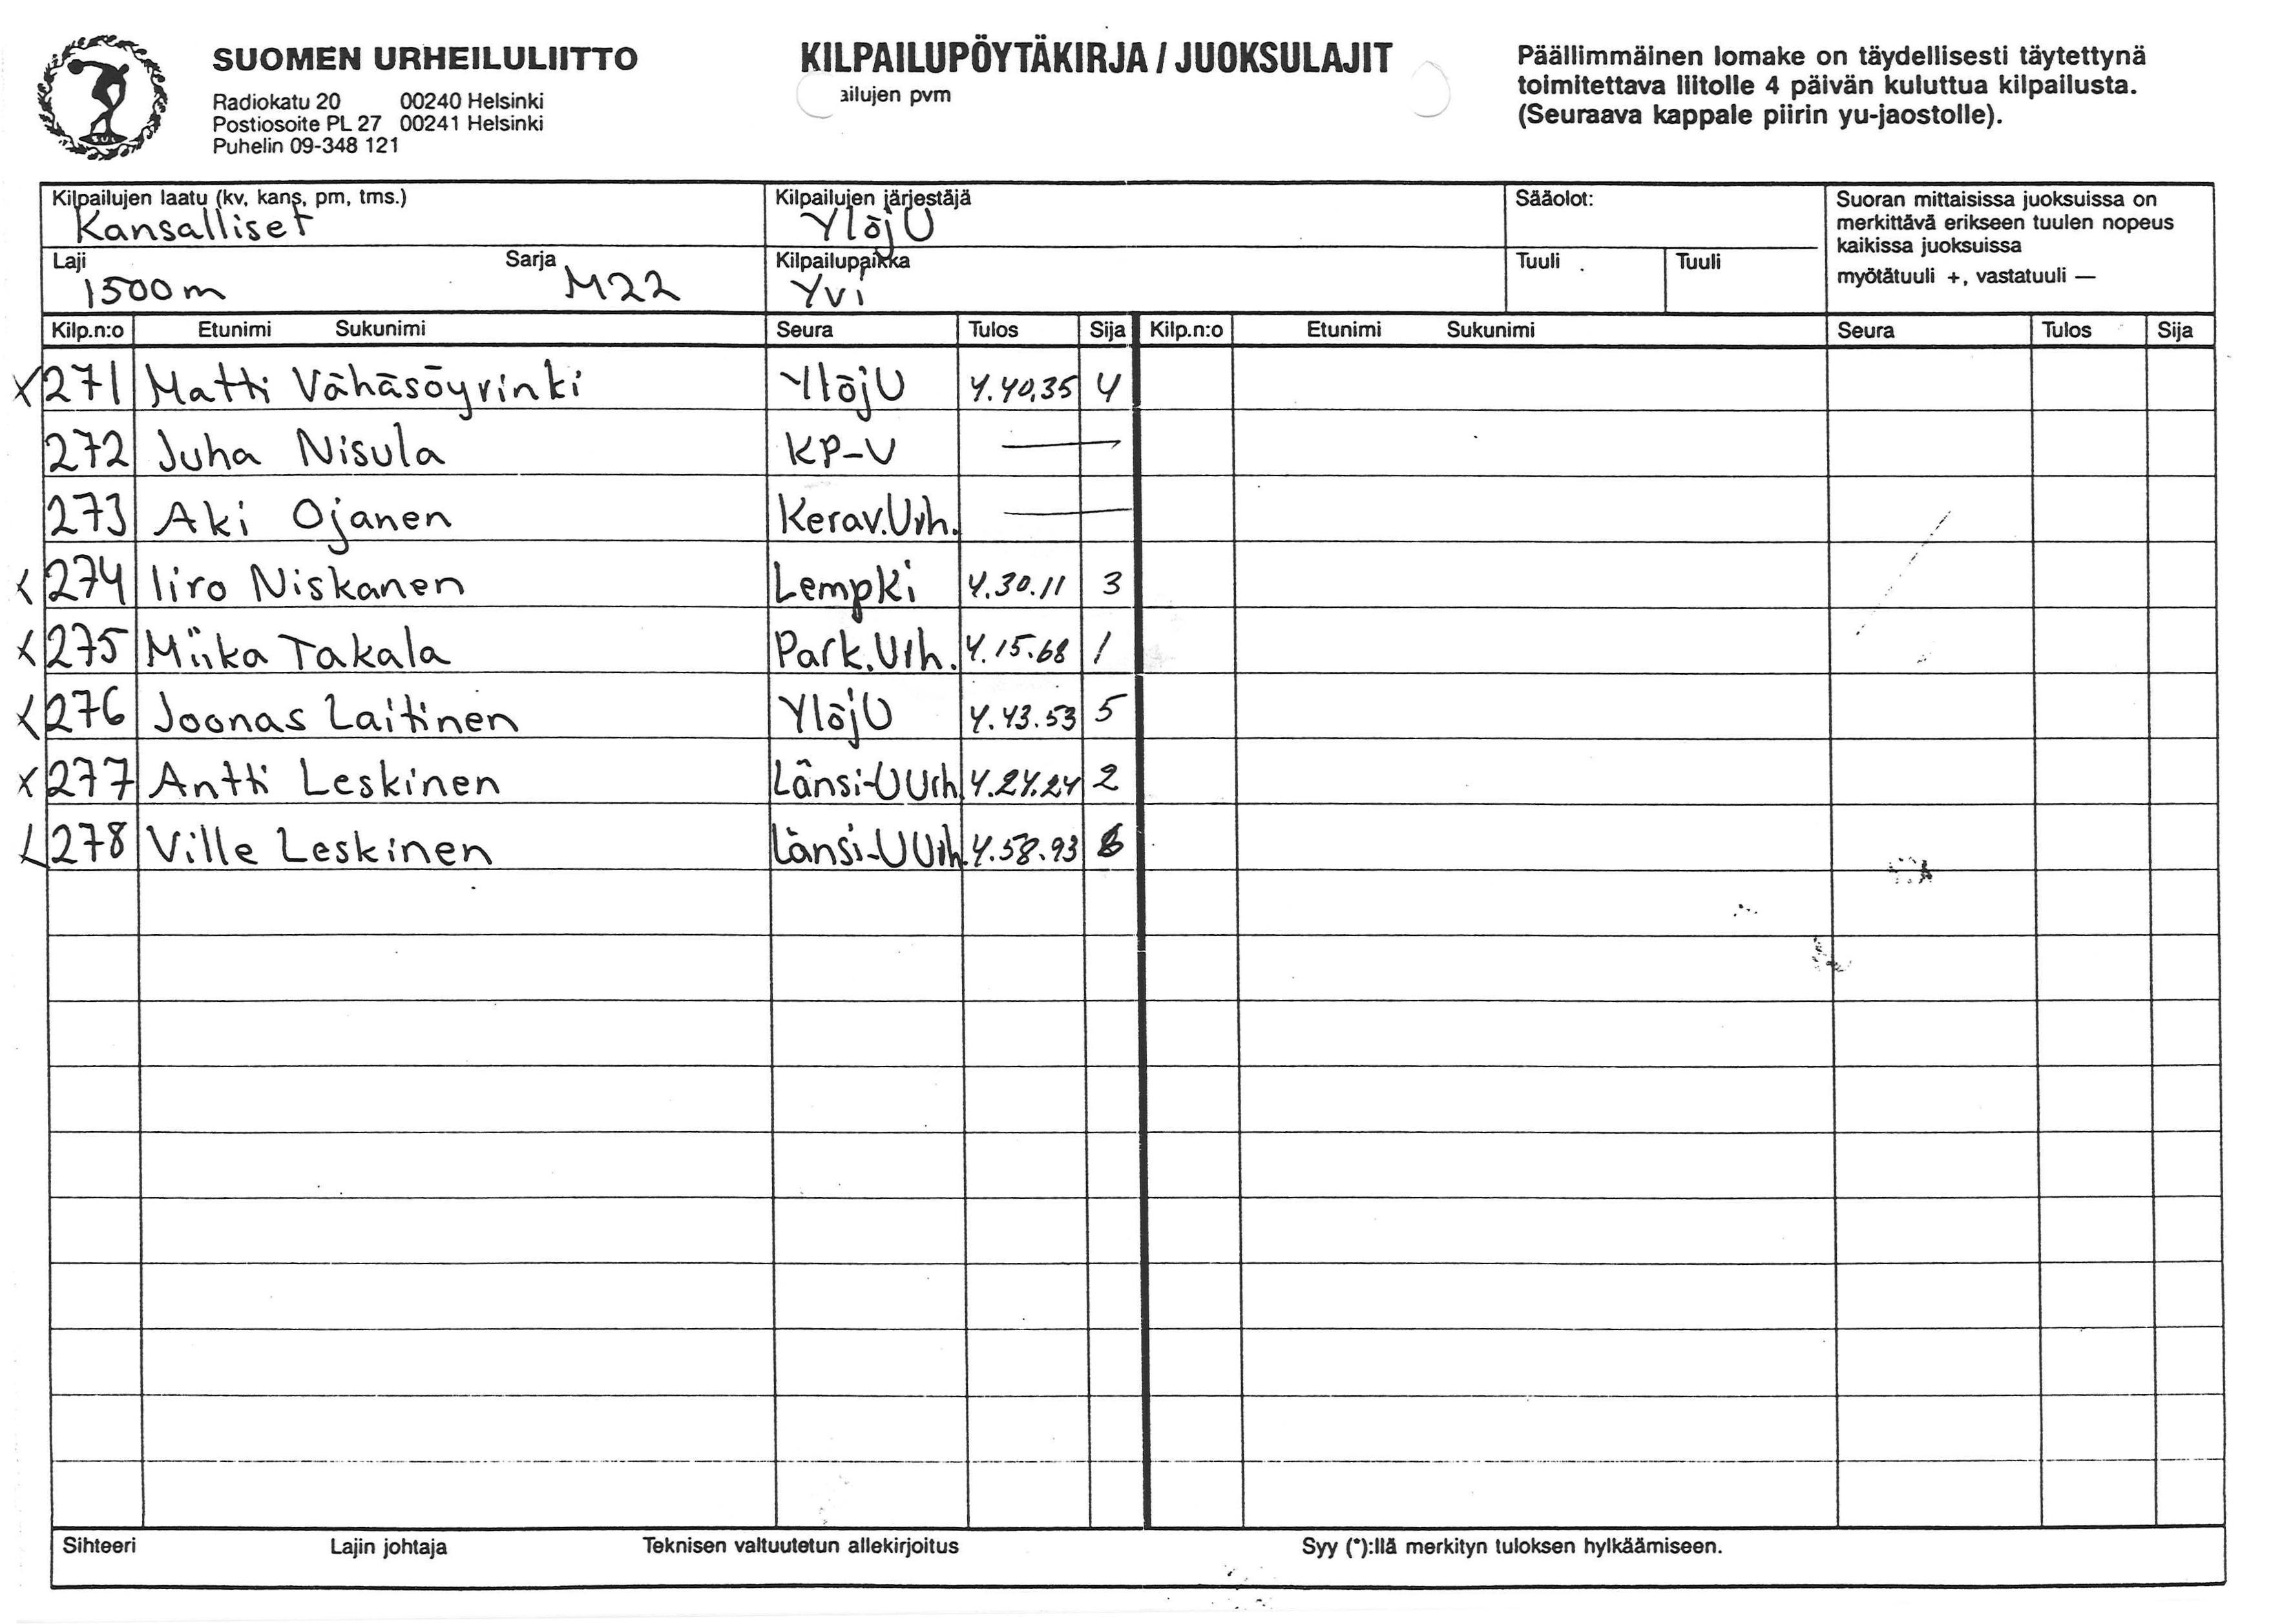 SUOMEN URHEILULIITTO
Radiokatu 20 00240 Helsinki
Postiosoite PL 27 00241 Helsinki
Puhelin 09-348 121
KILPAILUPÖYTÄKIRJA / JUOKSULAJIT
ailujen pvm
Päällimmäinen lomake on täydellisesti täytettynä
toimitettava liitolle 4 päivän kuluttua kilpailusta.
(Seuraava kappale piirin yu-jaostolle).
Kilpailujen laatu (kv, kans, pm, tms.)
Kansalliset
Kilpailujen järjestäjä
YlöjU
Sääolot:
Suoran mittaisissa juoksuissa on
merkittävä erikseen tuulen nopeus
kaikissa juoksuissa
myötätuuli +, vastatuuli —
Laji Sarja
1500m M22
Kilpailupaikka
Yvi
Tuuli Tuuli
Kilp.n:o Etunimi Sukunimi Seura Tulos Sija Kilp.n:o Etunimi Sukunimi Seura Tulos Sija
x 271 Matti Vähäsöyrinki YlöjU 4.40,35 4
272 Juha Nisula KP-V —
273 Aki Ojanen Kerav.Urh. —
x 274 Iiro Niskanen LempKi 4.30.11 3
x 275 Miika Takala Park.Urh. 4.15.68 1
x 276 Joonas Laitinen YlöjU 4.43.53 5
x 277 Antti Leskinen Länsi-UUrh. 4.24.24 2
x 278 Ville Leskinen Länsi-UUrh. 4.58.93 6
Sihteeri Lajin johtaja Teknisen valtuutetun allekirjoitus Syy (*):llä merkityn tuloksen hylkäämiseen.